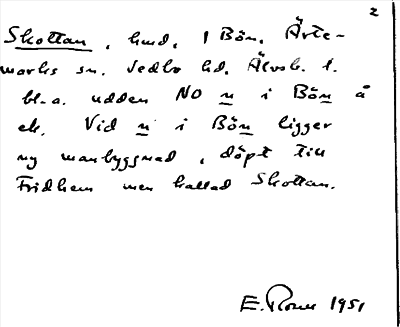 2
Skottan, hmd, 1 Bön, Ärte-
marks sn. Vedbo hd. Älvsb. l.
bl.a. udden NO n i Bön å
ek. Vid n i Bön ligger
ny manbyggnad, döpt till
Fridhem men kallad Skottan.
E. 1951